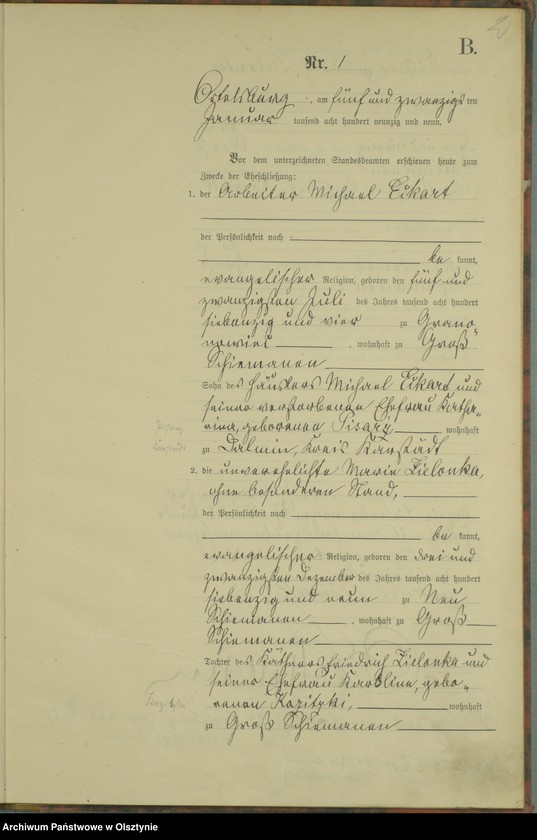 B.
Nr. 1
Ortelsburg, am fünf und zwanzigsten
Januar tausend acht hundert neunzig und neun.
Vor dem unterzeichneten Standesbeamten erschienen heute zum
Zwecke der Eheschließung:
1. der Arbeiter Michael Eckart
der Persönlichkeit nach
bekannt,
evangelischer Religion, geboren den fünf und
zwanzigsten Juli des Jahres tausend acht hundert
siebenzig und vier zu
, wohnhaft zu Groß
Schiemanen
Sohn des Häuslers Michael Eckart und
seiner verstorbenen Ehefrau Katha-
rina, geborenen Pisarz wohnhaft
zu Dalmin, Kreis Karstädt
2. die unverehelichte Marie Zielonka,
ohne besonderen Stand,
der Persönlichkeit nach
bekannt,
evangelischer Religion, geboren den drei und
zwanzigsten Dezember des Jahres tausend acht hundert
siebenzig und neun zu Neu
Schiemanen, wohnhaft zu Groß
Schiemanen
Tochter des Käthners Friedrich Zielonka und
seiner Ehefrau Karoline, gebo-
renen Kozitzki, wohnhaft
zu Groß Schiemanen
Archiwum Państwowe w Olsztynie